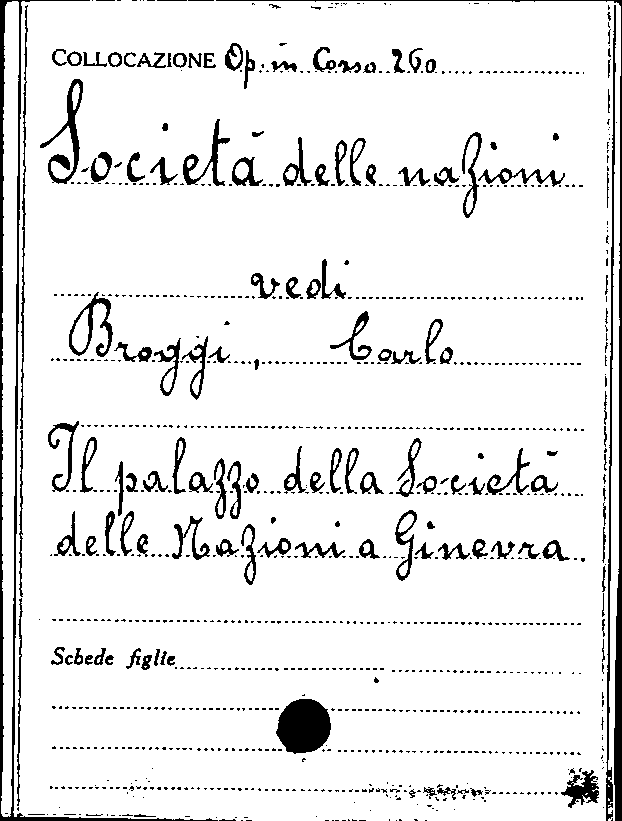 COLLOCAZIONE Op. in Corso 260
Società delle nazioni
vedi
Broggi, Carlo
Il palazzo della Società
delle Nazioni a Ginevra.
Schede figlie